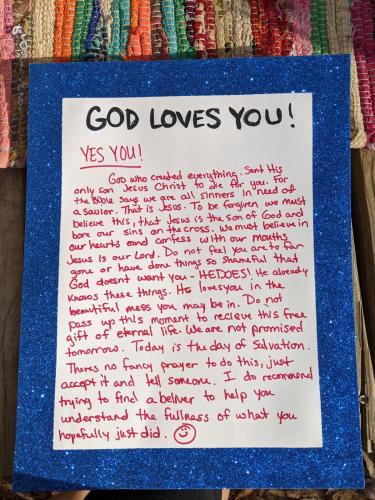 GOD LOVES YOU!
YES YOU!
God who created everything. Sent His
only son Jesus Christ to die for you. For
the Bible says we are all sinners in need of
a savior. That is Jesus. To be forgiven we must
believe this, that Jesus is the son of God and
bore our sins on the cross. We must believe in
our hearts and confess with our mouths
Jesus is our Lord. Do not feel you are to far
gone or have done things so shameful that
God doesnt want you - HE DOES! He already
knows these things. He loves you in the
beautiful mess you may be in. Do not
pass up this moment to recieve this free
gift of eternal life. We are not promised
tomorrow. Today is the day of Salvation.
Thures no fancy prayer to do this, just
accept it and tell someone. I do recommend
trying to find a beliver to help you
understand the fullness of what you
hopefully just did.